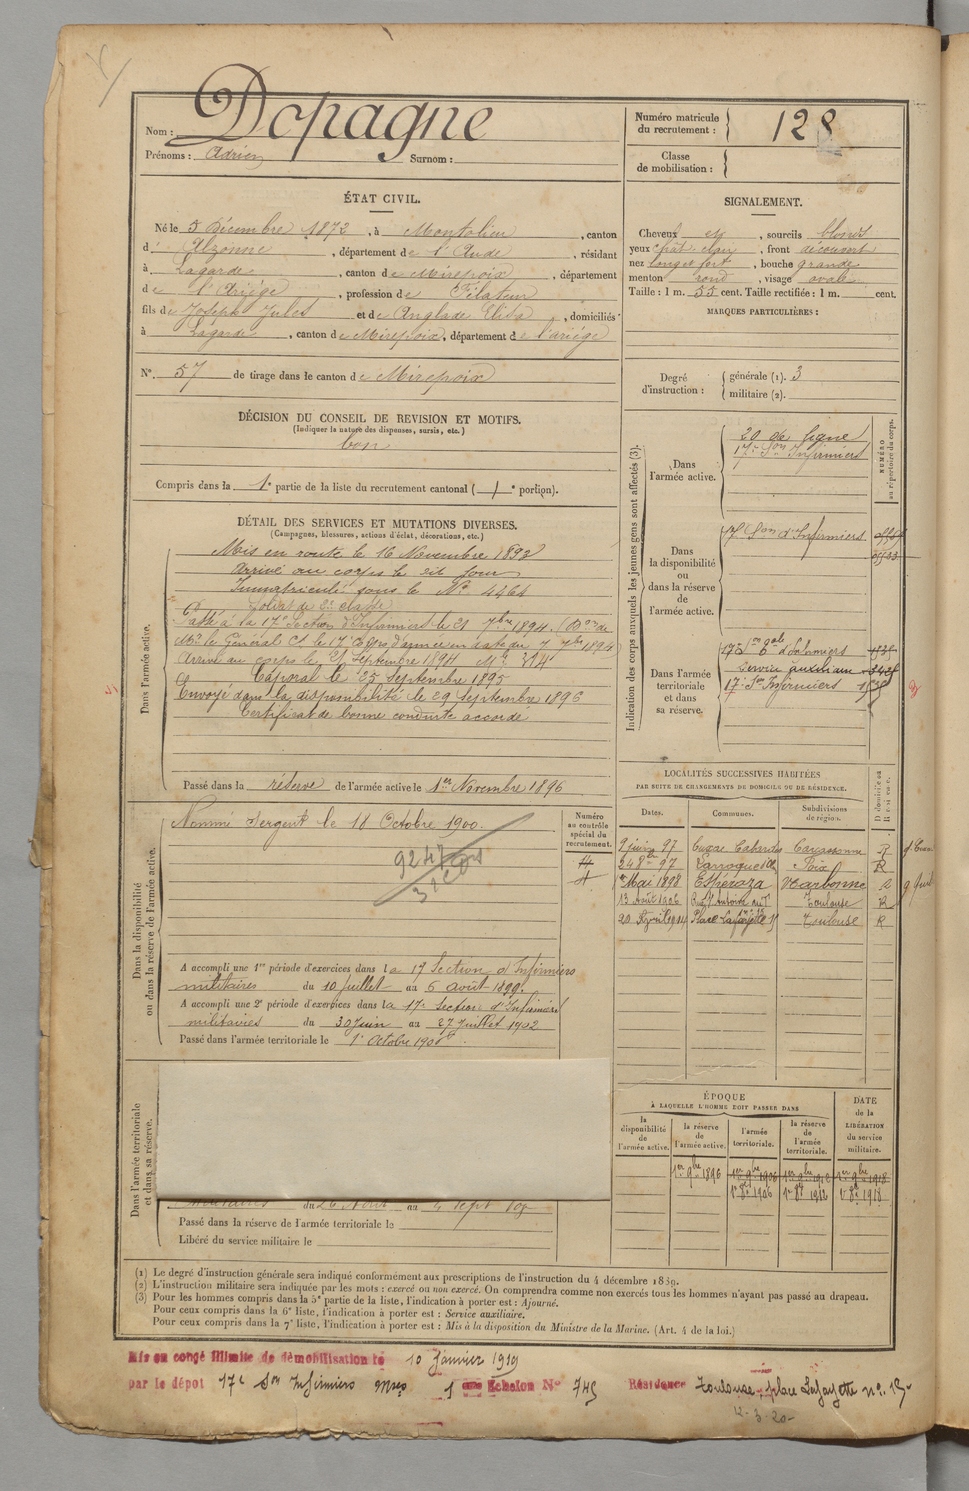 Nom : Dopagne
Prénoms : Adrien Surnom :
Numéro matricule du recrutement : 128
Classe de mobilisation :
ÉTAT CIVIL.
Né le 5 Décembre 1872, à Montolieu, canton
d' Alzonne, département de l'Aude, résidant
à Lagarde, canton de Mirepoix, département
de l'Ariége, profession de
fils de Joseph Jules et de Anglade Elisa, domiciliés
à Lagarde, canton de Mirepoix, département de l'ariége
N°. 57 de tirage dans le canton de Mirepoix
DÉCISION DU CONSEIL DE REVISION ET MOTIFS.
(Indiquer la nature des dispenses, sursis, etc.)
bon
Compris dans la 1e partie de la liste du recrutement cantonal ( / e portion).
DÉTAIL DES SERVICES ET MUTATIONS DIVERSES.
(Campagnes, blessures, actions d'éclat, décorations, etc.)
Dans l'armée active.
Mis en route le 16 Novembre 1893
Arrivé au corps le dit jour
Immatriculé sous le N° 4464
Soldat de 2e classe
Passé à la 17e Section d'Infirmiers le 21 7bre 1894. (Don de
Mr. le Général Ct le 17e Corps d'armée en date du 7 7bre 1894)
Arrivé au corps le 21 Septembre 1894 Mle 314
Caporal le 25 Septembre 1895
Envoyé dans la disponibilité le 29 Septembre 1896
Certificat de bonne conduite accordé
Passé dans la réserve de l'armée active le 1er Novembre 1896
Dans la disponibilité ou dans la réserve de l'armée active.
Numéro au contrôle spécial du recrutement.
Nommé Sergent le 18 Octobre 1900.
A accompli une 1re période d'exercices dans la 17 Section d'Infirmiers
militaires du 10 juillet au 6 août 1899.
A accompli une 2e période d'exercices dans la 17e Section d'Infirmiers
militaires du 30 Juin au 27 Juillet 1902
Passé dans l'armée territoriale le 1er Octobre 1906
Dans l'armée territoriale et dans sa réserve.
militaires du 26 Août au 4 Sept 08
Passé dans la réserve de l'armée territoriale le
Libéré du service militaire le
SIGNALEMENT.
Cheveux et, sourcils blonds
yeux chât. clair, front découvert
nez long et fort, bouche grande
menton rond, visage ovale
Taille : 1 m. 55 cent. Taille rectifiée : 1 m. cent.
MARQUES PARTICULIÈRES :
Degré d'instruction : générale (1). 3
militaire (2).
Indication des corps auxquels les jeunes gens sont affectés (3).
NUMÉRO au répertoire du corps.
Dans l'armée active.
20 de ligne
17e Son Infirmiers
Dans la disponibilité ou dans la réserve de l'armée active.
17e Son d'Infirmiers
Dans l'armée territoriale et dans sa réserve.
Service auxiliaire
17e Son Infirmiers
LOCALITÉS SUCCESSIVES HABITÉES
PAR SUITE DE CHANGEMENTS DE DOMICILE OU DE RÉSIDENCE.
Dates. Communes. Subdivisions de région. D domicile ou R résidence.
9 juin 97 Cuxac Cabardes Carcassonne R
24 8bre 97 Larroque d'Olm Foix R
1er Mai 1898 Espéraza Narbonne R
13 Août 1906 Toulouse R
20 Avril 1914 Place Lafayette 15 Toulouse R
ÉPOQUE
A LAQUELLE L'HOMME DOIT PASSER DANS
la disponibilité de l'armée active. la réserve de l'armée active. l'armée territoriale. la réserve de l'armée territoriale. DATE de la LIBÉRATION du service militaire.
1er 9bre 1896 1er 9bre 1906 1er 9bre 1912 1er 9bre 1918
1er 8bre 1906 1er 8bre 1912 1er 8bre 1918
(1) Le degré d'instruction générale sera indiqué conformément aux prescriptions de l'instruction du 4 décembre 1889.
(2) L'instruction militaire sera indiquée par les mots : exercé ou non exercé. On comprendra comme non exercés tous les hommes n'ayant pas passé au drapeau.
(3) Pour les hommes compris dans la 5e partie de la liste, l'indication à porter est : Ajourné.
Pour ceux compris dans la 6e liste, l'indication à porter est : Service auxiliaire.
Pour ceux compris dans la 7e liste, l'indication à porter est : Mis à la disposition du Ministre de la Marine. (Art. 4 de la loi.)
Mis en congé illimité de démobilisation le 10 Janvier 1919
par le dépôt 17e Son Infirmiers Mres 1 Echelon N° 745 Résidence Toulouse, place Lafayette n° 15
12-3-20-